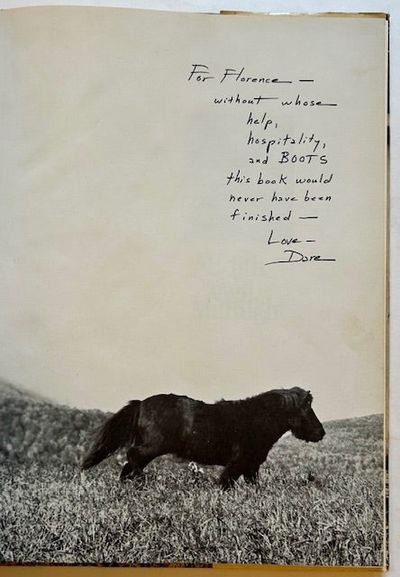 For Florence —
without whose
help,
hospitality,
and BOOTS
this book would
never have been
finished —
Love —
Dare